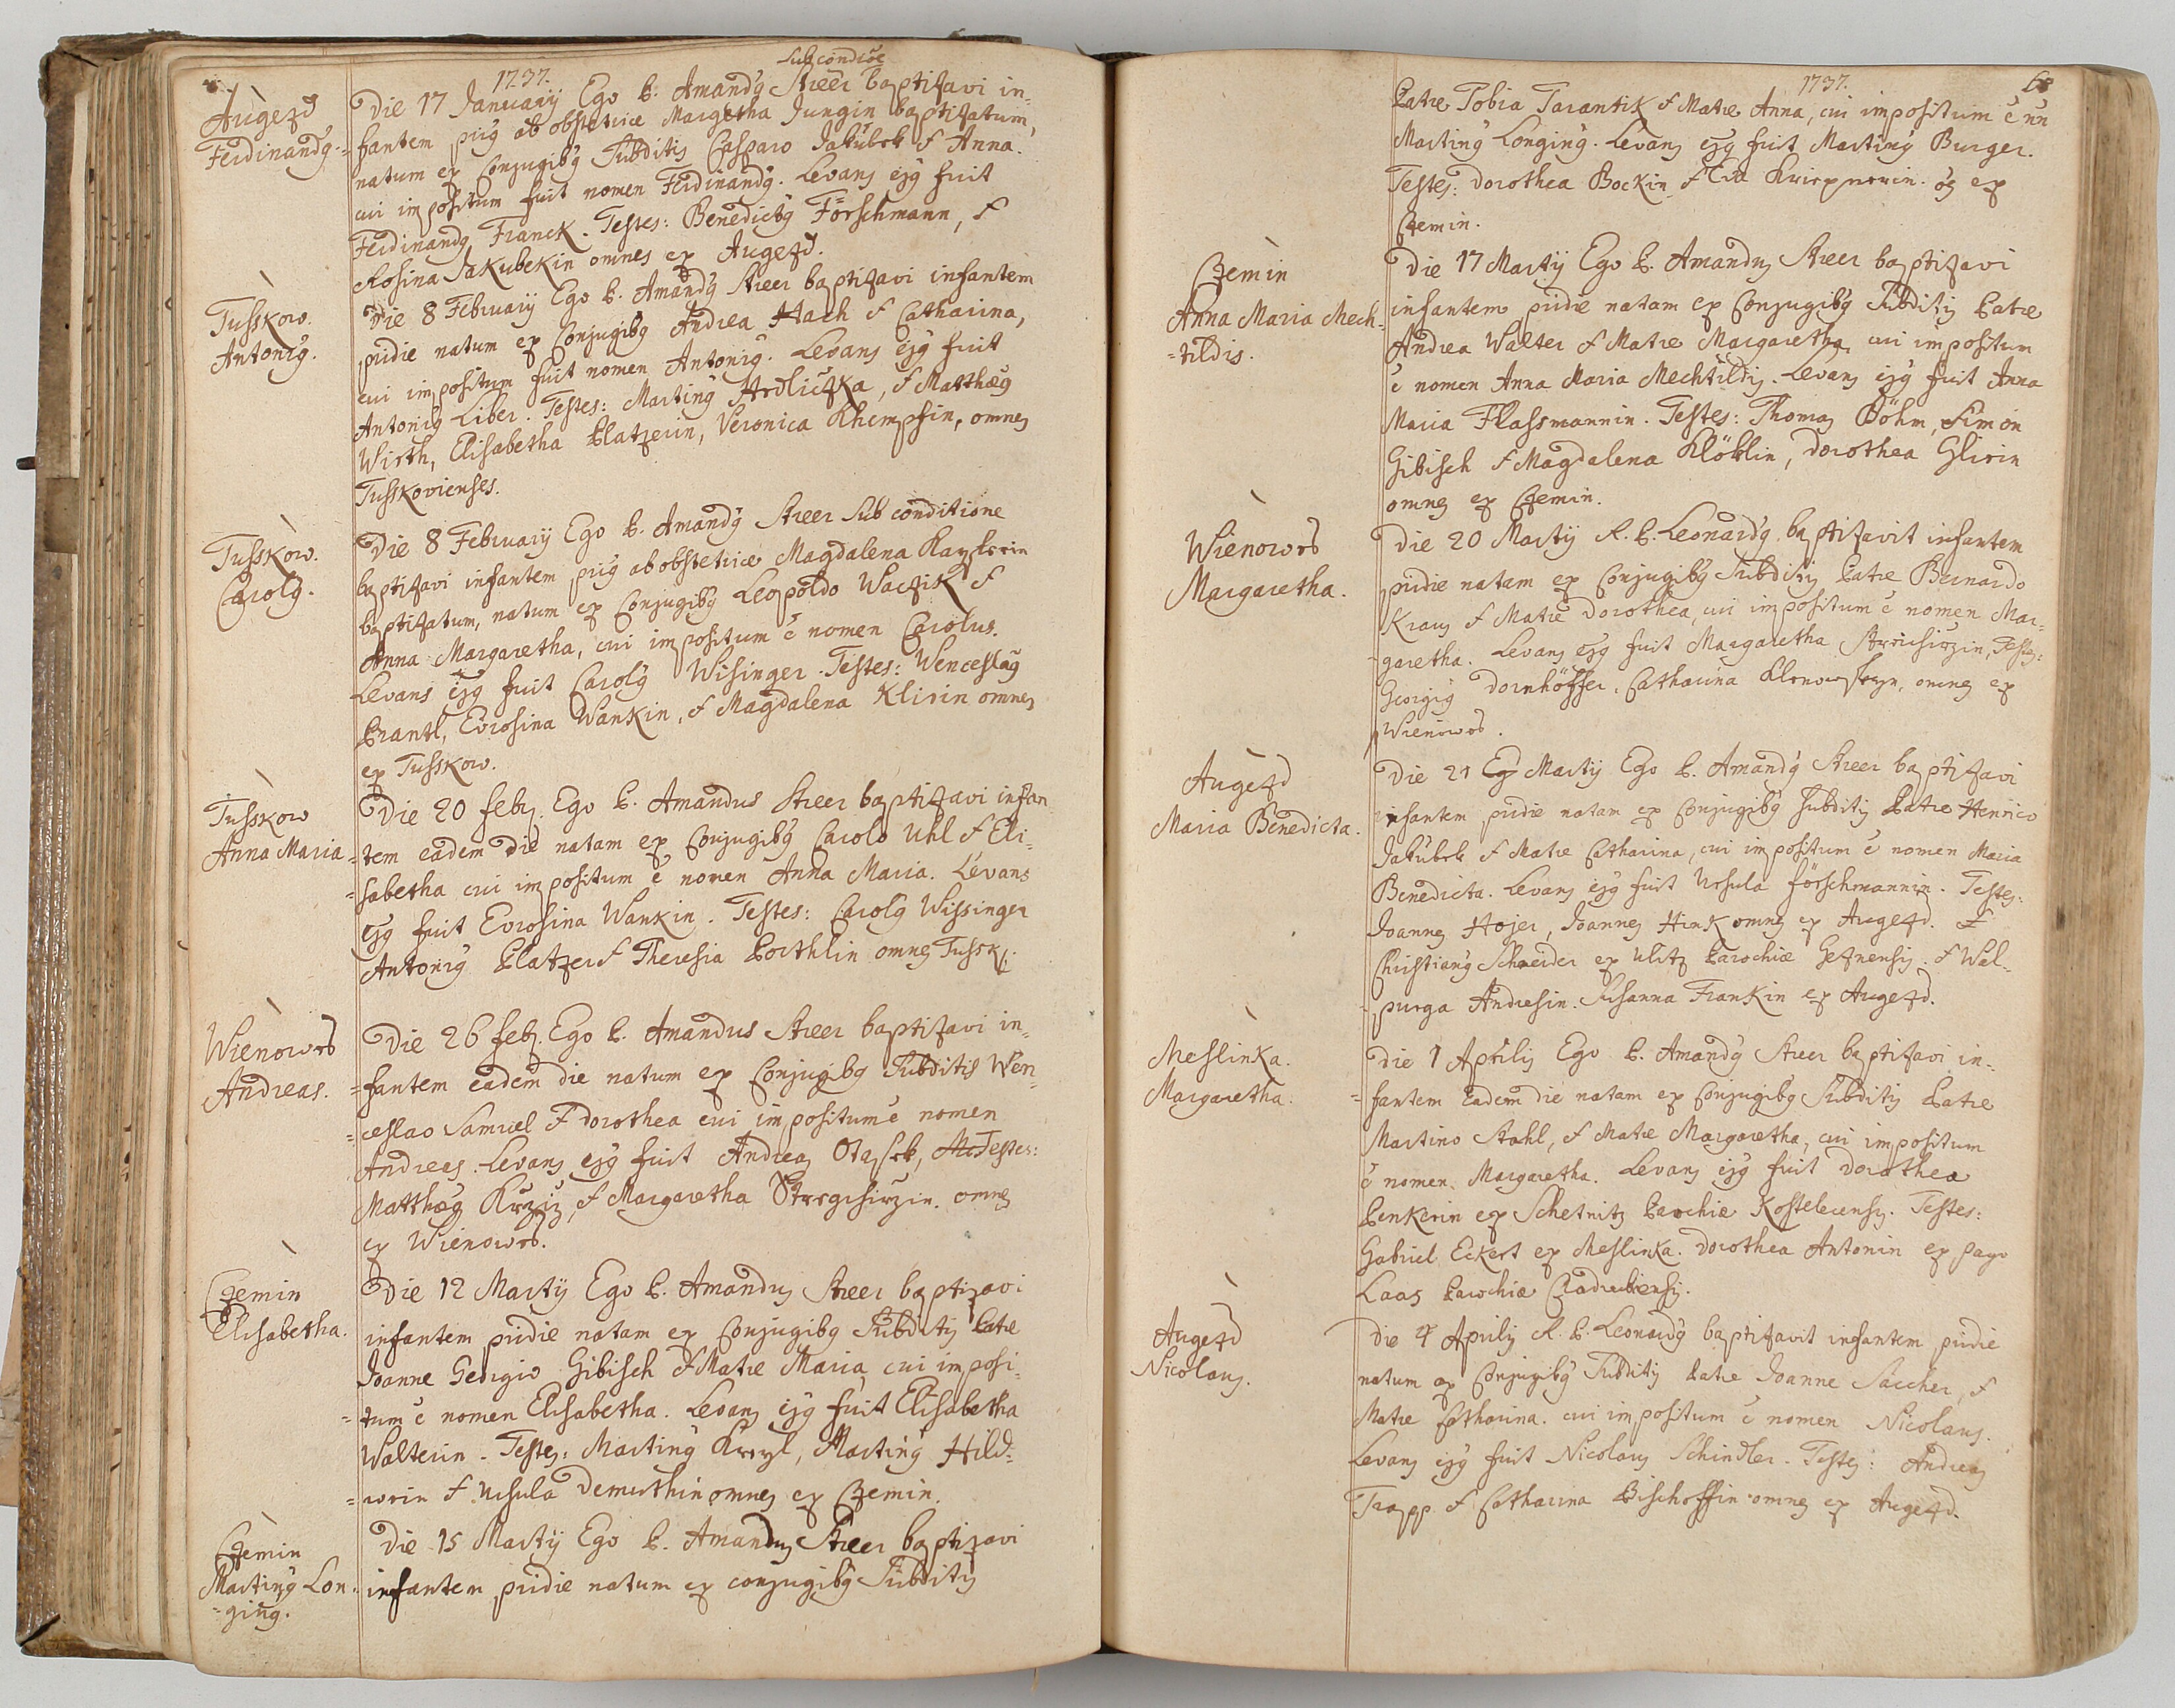 1737.
Sub condiõe
Augezd
Ferdinandg.
Die 17 Januarij Ego P. Amandg Streer baptizavi in-
=fantem prig ab obstetrice Margetha Jungin baptizatum,
natum ex Conjugibg Subditis Casparo Jakubek & Anna.
cui impositum fuit nomen Ferdinandg. Levans ejg fuit
Ferdinandg Franck. Testes: Benedictg Förschmann, &
Rosina Jakubekin omnes ex Augezd.
Tusskow.
Antonig.
Die 8 February Ego P. Amandg Streer baptizavi infantem
pridie natum ex Conjugibg Andrea Hach & Catharina,
cui impositum fuit nomen Antonig. Levans ejg fuit
Antonig Liber. Testes: Marting Hrdliczka, & Matthæg
Wirth, Elisabetha Platzerin, Veronica Khempfin, omnes
Tusskovienses.
Tusskow.
Carolg.
Die 8 February Ego P. Amandg Streer Sub conditione
baptizavi infantem prig ab obstetrice Magdalena
baptizatum, natum ex Conjugibg Leopoldo Waczik &
Anna Margaretha, cui impositum ẽ nomen Carolus.
Levans ejg fuit Carolg Wisinger. Testes: Wenceslag
Prantl, Evrosina Wankin, & Magdalena Klirin omnes
ex Tusskow.
Tusskow
Anna Maria
Die 20 feby. Ego P. Amandus Streer baptizavi infan
=tem eadem die natam ex Conjugibg Carolo Uhl & Eli-
=sabetha cui impositum ẽ nomen Anna Maria. Levans
ejg fuit Evrosina Wankin. Testes: Carolg Wissinger
Antonig Platzer & Theresia Porthlin omnes Tussk.
Wienowrs
Andreas.
Die 26 feby. Ego P. Amandus Streer baptizavi in-
=fantem eadem die natum ex Conjugibg Subditis Wen-
=ceslao Samuel & dorothea cui impositum ẽ nomen
Andreas. Levans ejg fuit Andreas Otasek, Testes:
Matthæg & Margaretha omnes
ex Wienowrs.
Czemin
Elisabetha.
Die 12 Martij Ego P. Amandus Streer baptizavi
infantem pridie natam ex Conjugibg Subditis Patre
Joanne Georgio Gibisch & Matre Maria cui imposi-
=tum ẽ nomen Elisabetha. Levans ejg fuit Elisabetha
Walterin. Testes: Marting Kreyl, Marting Hild-
=worin & Ursula Demuthin omnes ex Czemin.
Czemin
Marting Lon-
=ging.
Die 15 Martij Ego P. Amandus Streer baptizavi
infantem pridie natum ex conjugibg Subditis
1737.
68
Patre Tobia Tarantik & Matre Anna, cui impositum ẽ nn
Marting Longing. Levans ejg fuit Marting Burger.
Testes: Dorothea Bockin & Eva oẽs ex
Czemin.
Czemin
Anna Maria Mech-
=tildis.
Die 17 Martij Ego P. Amandus Streer baptizavi
infantem pridie natam ex Conjugibg Subditis Patre
Andrea Walter & Matre Margaretha, cui impositum
ẽ nomen Anna Maria Mechtildis. Levans ejg fuit Anna
Maria Flassmannin. Testes: Thomas Böhm, Simon
Gibisch & Magdalena Klöklin, Dorothea Glirin
omnes ex Czemin.
Wienowrs
Margaretha.
Die 20 Martij R. P. Leonardg baptizavit infantem
pridie natam ex Conjugibg Subditis Patre Bernardo
Kraus & Matre Dorothea, cui impositum ẽ nomen Mar-
=garetha. Levans ejg fuit Margaretha Testes:
Georgig Dornhöffer, Catharina omnes ex
Wienowrs.
Augezd
Maria Benedicta.
Die 21 Martij Ego P. Amandg Streer baptizavi
infantem pridie natam ex Conjugibg Subditis Patre Henrico
Jakubek & Matre Catharina, cui impositum ẽ nomen Maria
Benedicta. Levans ejg fuit Ursula Förschmannin. Testes:
Joannes Hojer, Joannes Hink omnes ex Augezd. &
Christiang Schneider ex Ulitz Parochiæ Geznensis. & Wal-
=purga Andresin. Susanna Frankin ex Augezd.
Meslinka.
Margaretha.
Die 1 Aprilis Ego P. Amandg Streer baptizavi in-
=fantem Eadem die natam ex Conjugibg Subditis Patre
Martino Stahl, & Matre Margaretha, cui impositum
ẽ nomen Margaretha. Levans ejg fuit Dorothea
Penkerin ex Schetnitz Parochiæ Kostelecensis. Testes:
Gabriel Eckert ex Meslinka. Dorothea Antonin ex pago
Laas Parochiæ Czadrubiensis.
Augezd
Nicolaus.
Die 4 Aprilis R. P. Leonardg baptizavit infantem pridie
natum ex Conjugibg Subditis Patre Joanne Saccher, &
Matre Catharina. cui impositum ẽ nomen Nicolaus.
Levans ejg fuit Nicolaus Schindler. Testes: Andreas
Trapp & Catharina Bischoffin omnes ex Augezd.